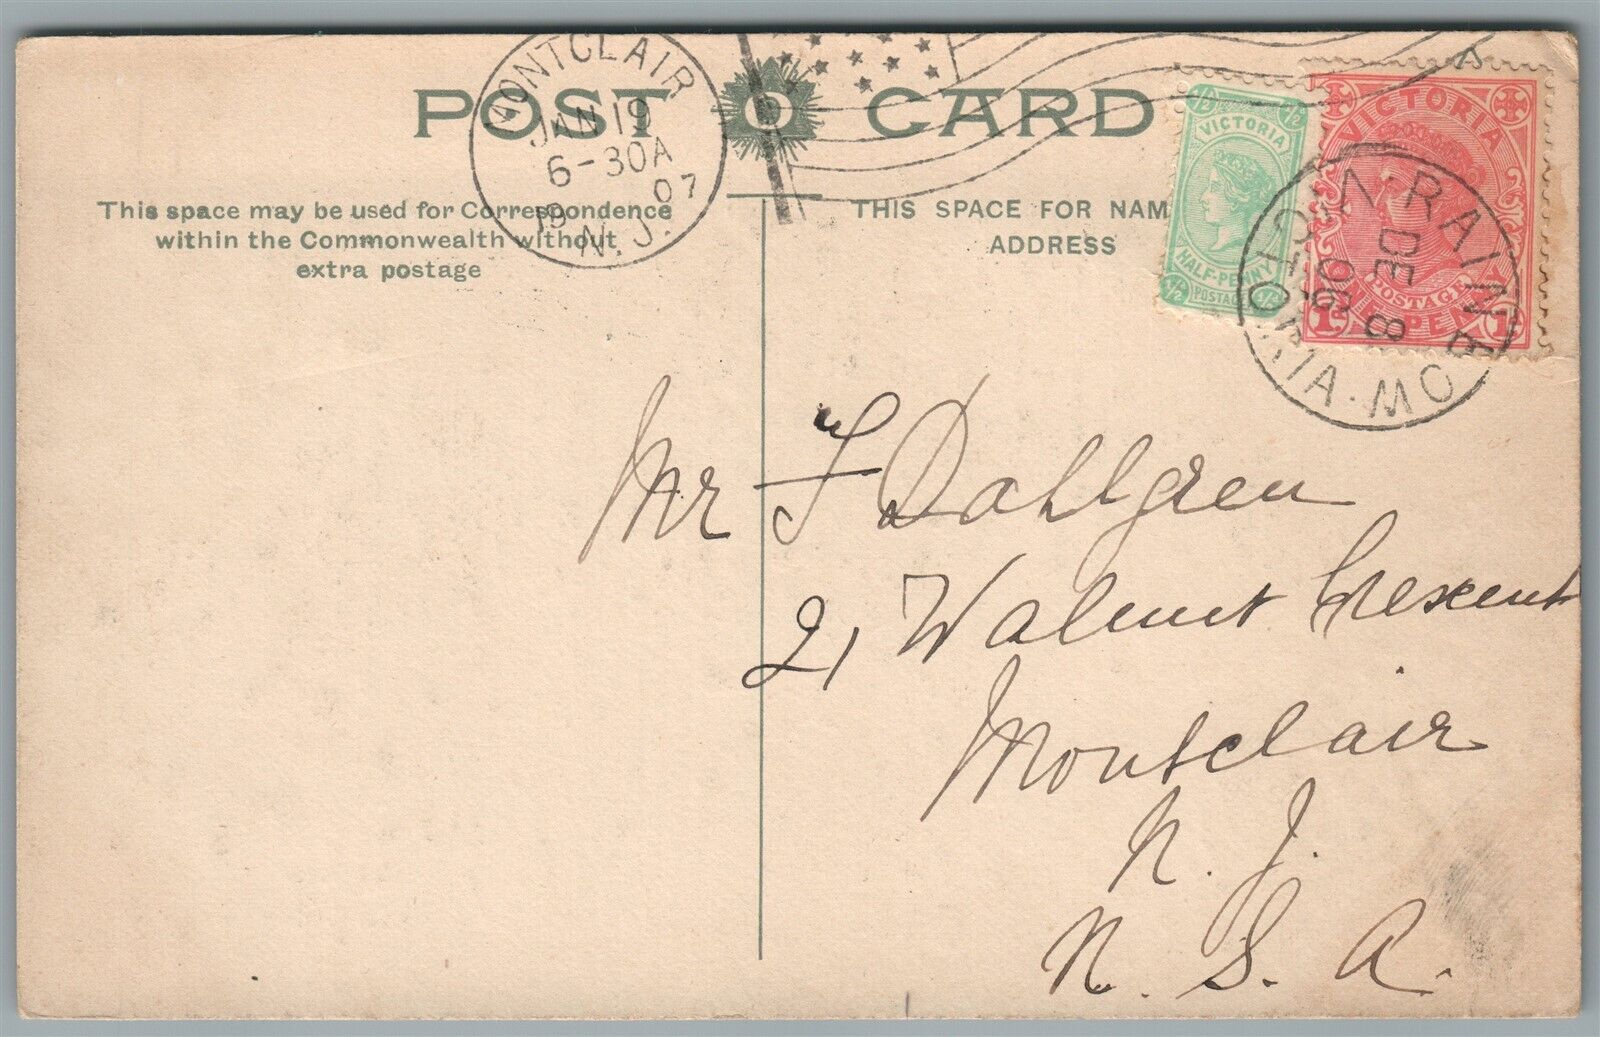 POST CARD
MONTCLAIR
JAN 19
6-30A
19 07
N. J.
This space may be used for Correspondence
within the Commonwealth without
extra postage
THIS SPACE FOR NAM
ADDRESS
½ ½
VICTORIA
HALF-PENNY
½ POSTAGE ½
VICTORIA
POSTAGE
1 PEN 1
RAINBOW · VICTORIA
DE 8
06
Mr F Dahlgren
21 Walnut Crescent
Montclair
N. J.
U. S. A.